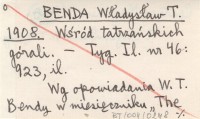 BENDA Władysław T.
1908. Wśród tatrzańskich
górali. – Tyg. Il. nr 46:
923, il.
Wg opowiadania W. T.
Bendy w miesięczniku „The